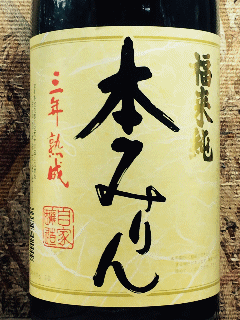 福来純
本みりん
三年熟成
自家
醸造